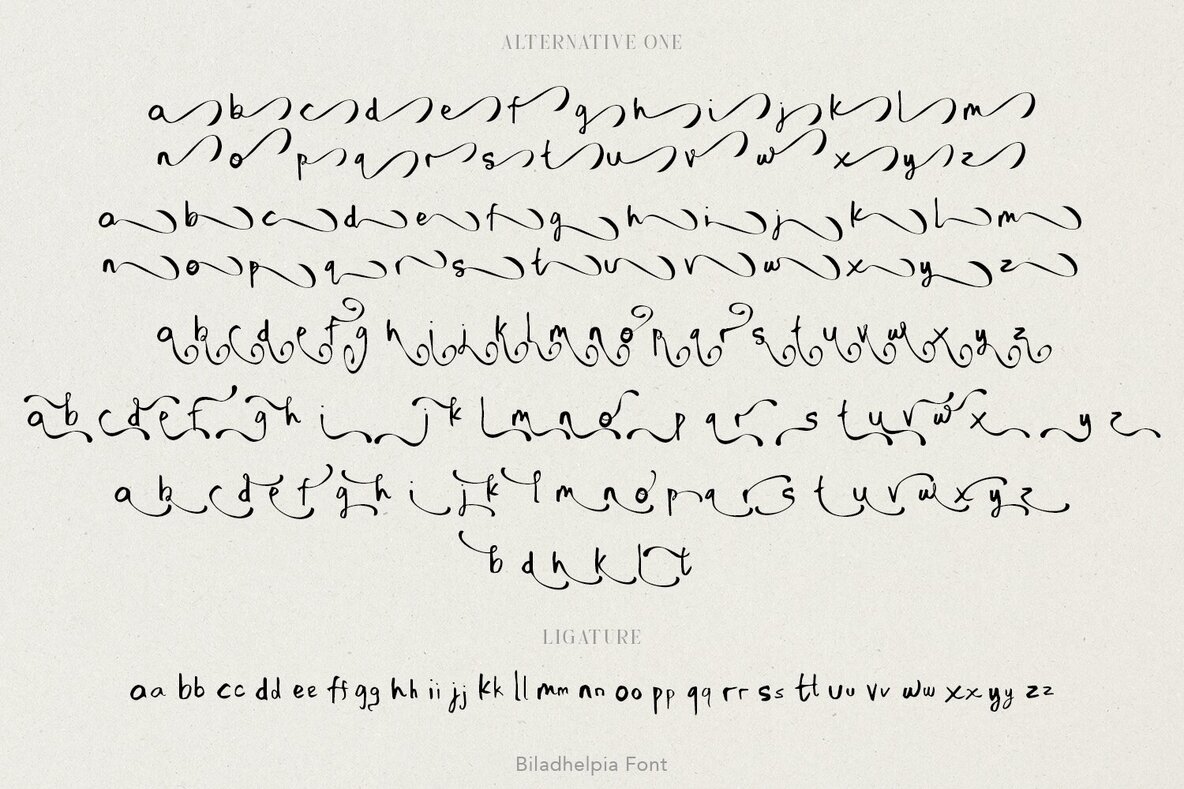 ALTERNATIVE ONE
a b c d e f g h i j k l m
n o p q r s t u v w x y z
a b c d e f g h i j k l m
n o p q r s t u v w x y z
a b c d e f g h i j k l m n o p q r s t u v w x y z
a b c d e f g h i j k l m n o p q r s t u v w x y z
a b c d e f g h i j k l m n o p q r s t u v w x y z
b d h k l t
LIGATURE
aa bb cc dd ee ff gg hh ii jj kk ll mm nn oo pp qq rr ss tt uu vv ww xx yy zz
Biladhelpia Font